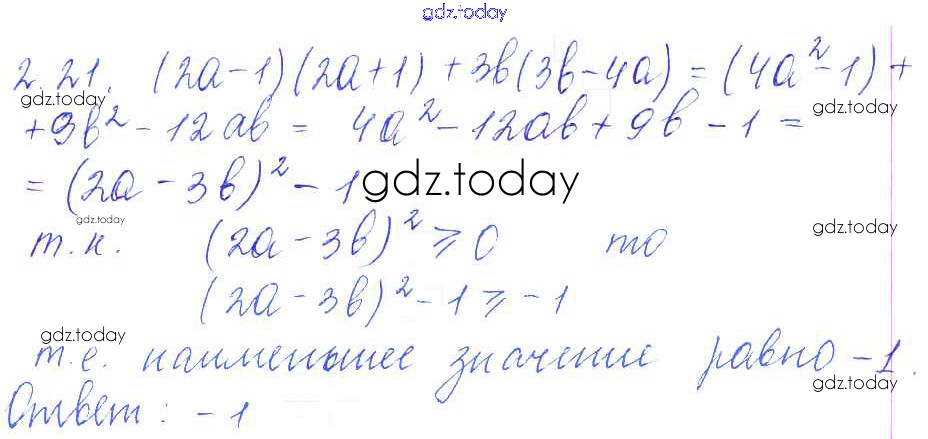 gdz.today
2.21. (2a-1)(2a+1)+3b(3b-4a)=(4a²-1)+
gdz.today gdz.today
+9b²-12ab= 4a²-12ab+9b-1=
=(2a-3b)²-1
gdz.today
gdz.today
т.к. (2a-3b)²⩾0 то
gdz.today
(2a-3b)²-1⩾-1
gdz.today
т.е. наименьшее значение равно -1.
gdz.today
Ответ: -1